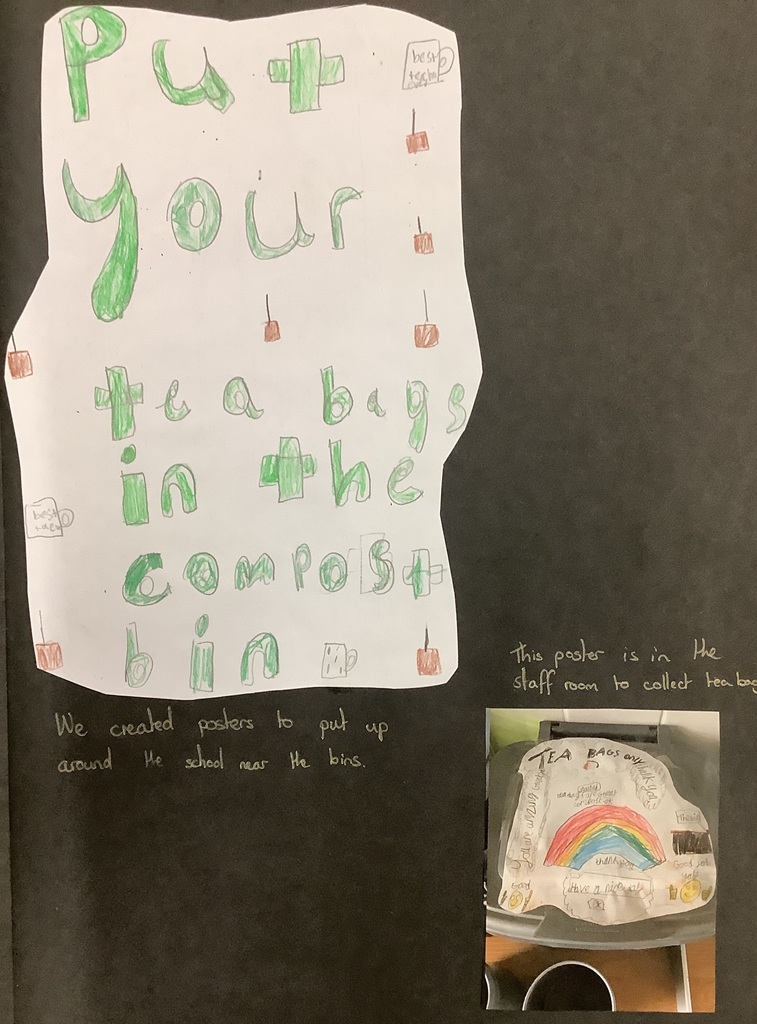 Put
best
your
tea bags
in the
best
compost
bin
We created posters to put up
around the school near the bins.
This poster is in the
staff room to collect tea bag
TEA BAGS only
thank you
You are
thank you
Have a nice
Good job
Good